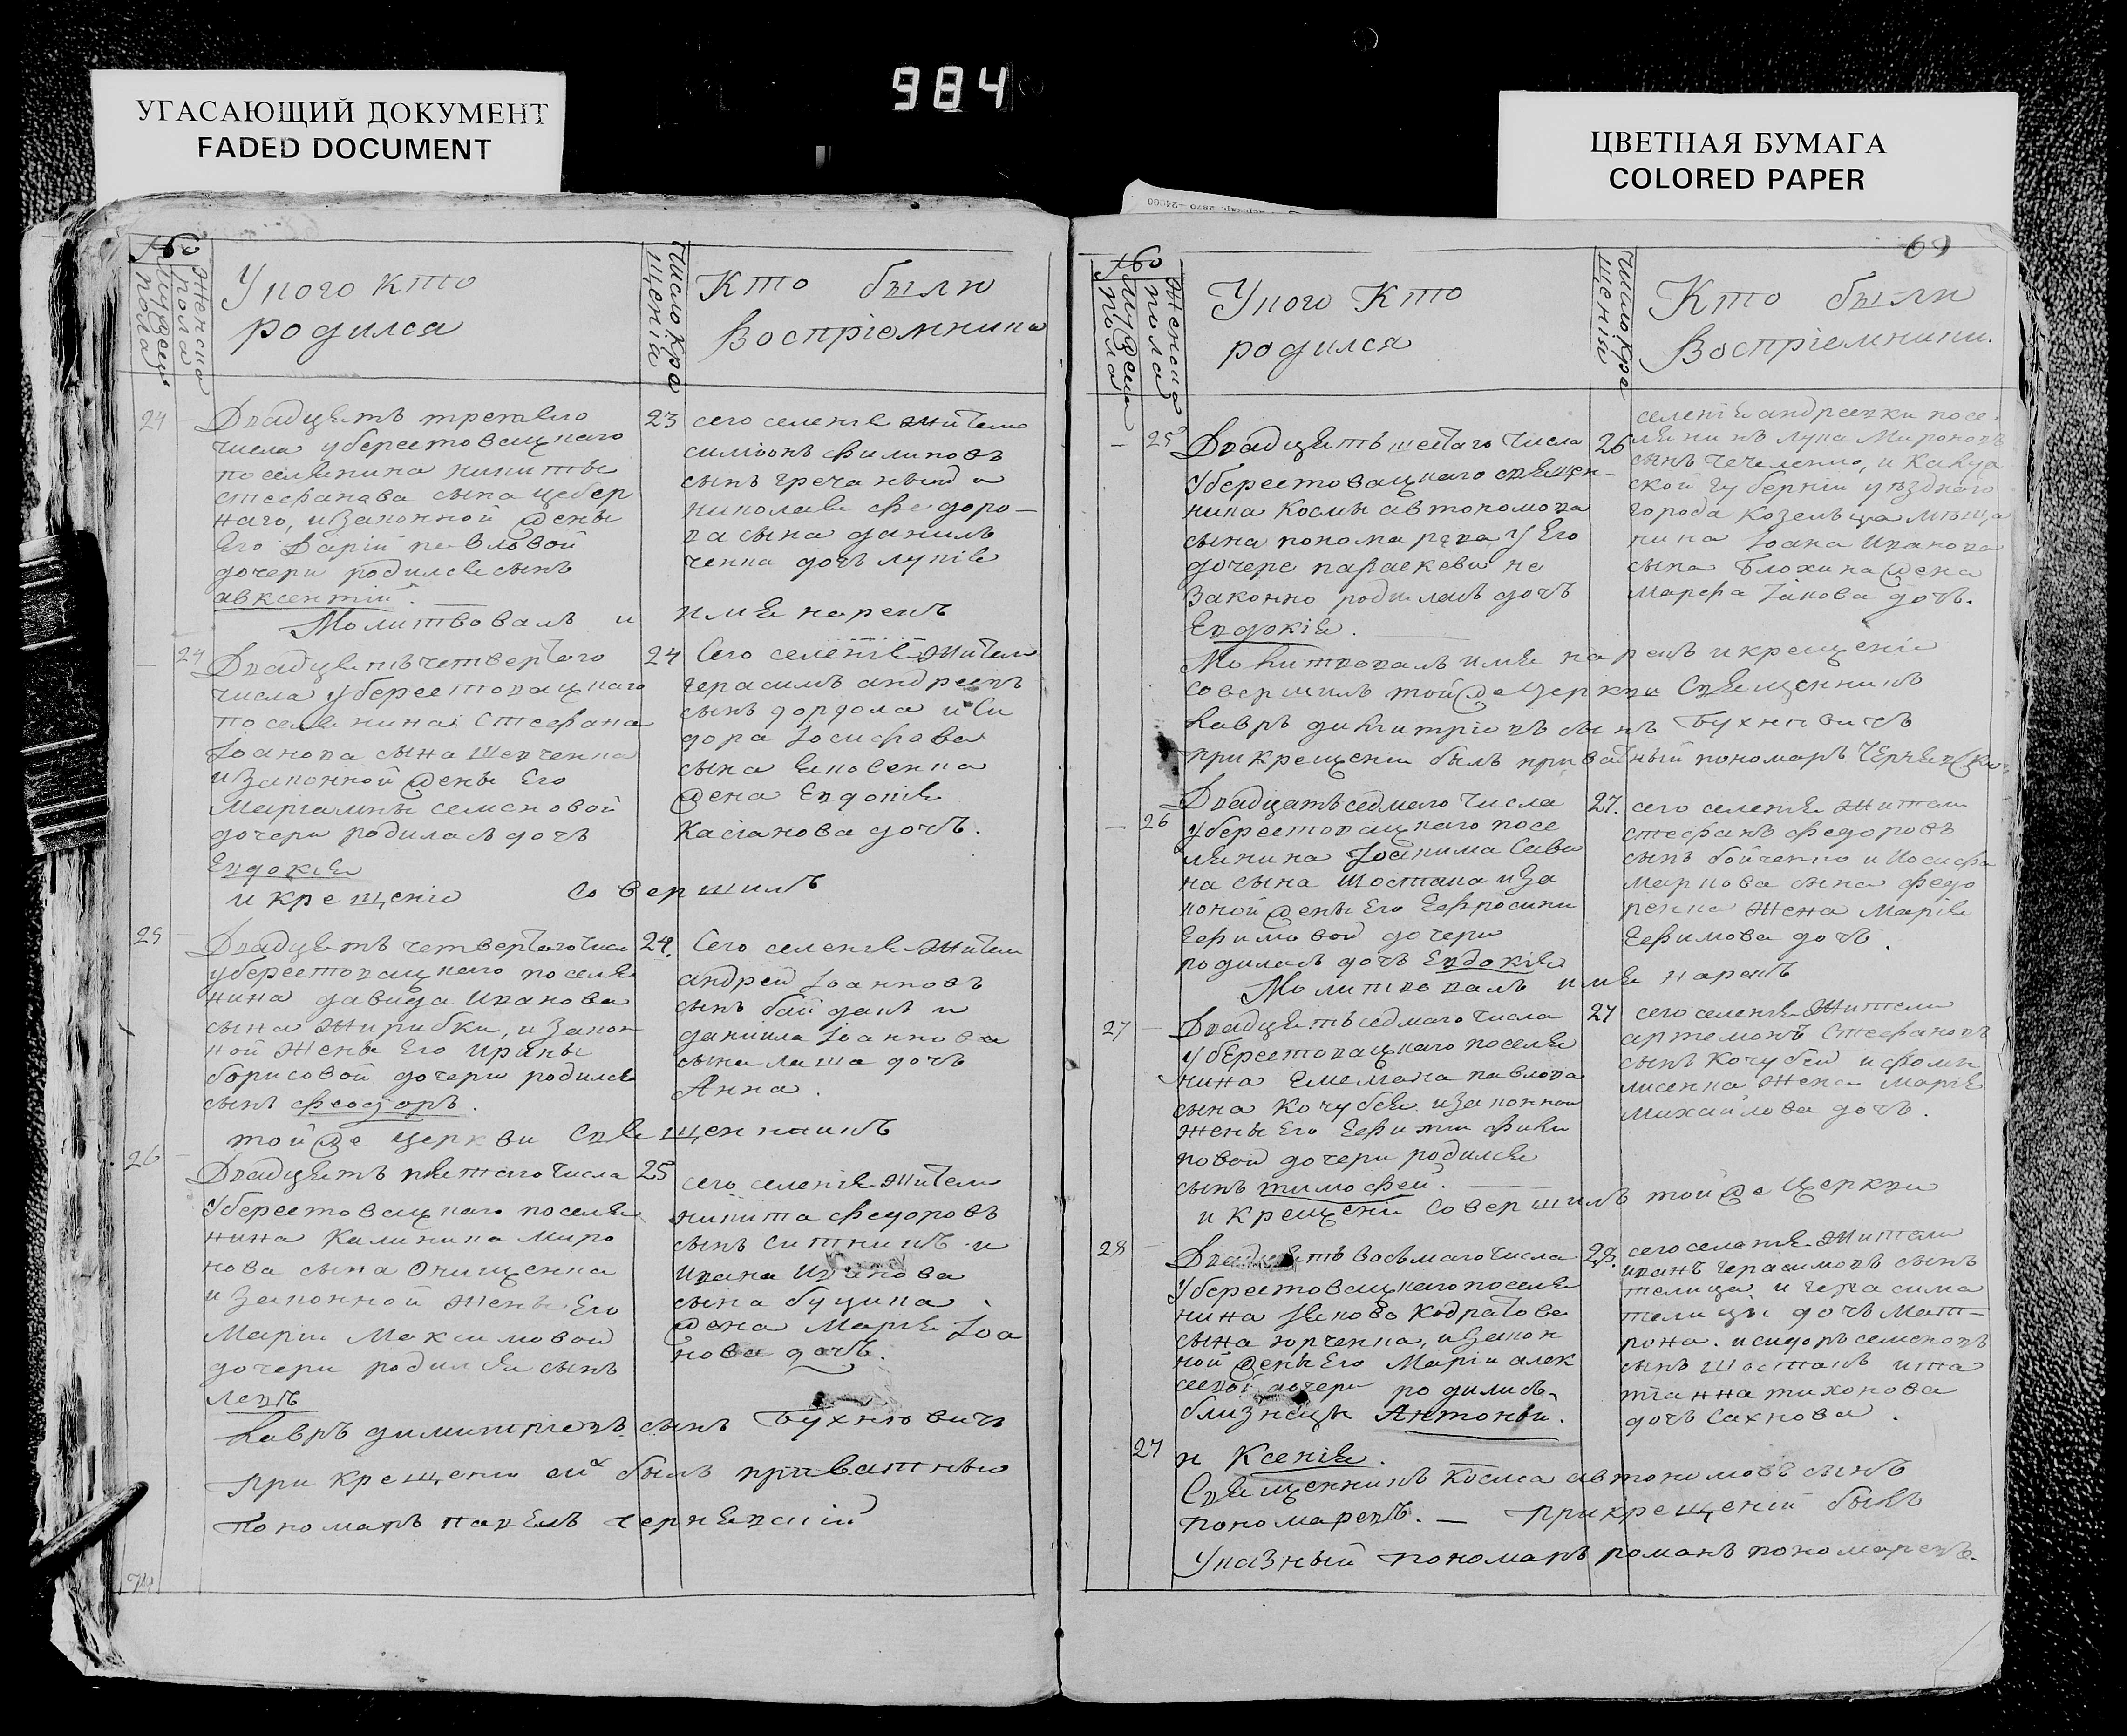 984
УГАСАЮЩИЙ ДОКУМЕНТ
FADED DOCUMENT
ЦВЕТНАЯ БУМАГА
COLORED PAPER
Женска пола
У кого кто
родился
Число кре
щенія
Кто были
Воспріемника
24
Двадцеть третяго
числа уберестовецкаго
поселянина никиты
стефанова сына цебер
наго, и законной жены
Его Даріи павловой
дочери родился сынъ
авксентій.
23
сего селенія жители
симіонъ филиповъ
сынъ
николая федоро-
ва сына даниль
ченка дочь
Молитвовалъ и имя нарекъ
24
Двадцеть четвертого
числа уберестовецкаго
поселянина Стефана
Іоанова сына Шевченка
и законной жены Его
семеновой
дочери родилась дочь
Евдокія
24
Сего селенія жители
герасимъ андреевъ
сынъ дордола и Си
дора Іосифова
сына
жена Евдокія
Касіанова дочь.
и крещеніе совершилъ
25
Двадцеть четвертого чис
уберестовецкаго поселя
нина давида Иванова
сына Жирибки, и закон
ной жены Его Ирины
борисовой дочери родился
сынъ Феодоръ.
24.
Сего селенія жители
андрей Іоанновъ
сынъ байдакъ и
даниила Іоаннова
сына лаша дочь
Анна.
той же церкви Священникъ
26
Двадцеть пятаго числа
Уберестовецкаго поселя
нина Калиника Миро
нова сына Онищенка
и законной жены Его
Маріи Максимовой
дочери родился сынъ
Левъ
25
сего селенія жители
никита федоровъ
сынъ ситникъ и
Ивана Иванова
сына буцика
жена Марія Іоа
нова дочь.
Лавръ димитріевъ сынъ Бухновичъ
При крещеніи былъ приватный
Пономаръ павелъ чернявскій
69
Женска пола
У кого Кто
родился
Число Кре
щенія
Кто были
Воспріемники.
25
Двадцеть шестаго числа
Уберестовецкаго священ-
ника Космы автономова
сына пономарева у Его
дочере параскеви не
законно родилась дочь
Евдокія.
26
селенія андреевки посе.
лянинъ лука Мироновъ
сынъ чечеленко, и
ской губерніи уезднаго
города Козельца меща
нина Іоана Иванова
сына Блохина жена
марфа Іакова дочь.
Молитвовалъ имя нарекъ и крещеніе
совершилъ той же Церкви Священникъ
Лавръ димитріевъ сынъ Бухновичъ
При крещеніи былъ приватный пономаръ
26
Двадцать седмаго числа
уберестовецкаго посе
лянина Іоакима Сави
на сына шостака и за
коной жены Его Ефросини
Ефимовой дочери
родилась дочь Евдокія
27.
сего селенія жители
стефанъ федоровъ
сынъ бойченко и Иосифа
маркова сына федо
ренка жена Марія
Ефимова дочь.
Молитвовалъ имя нарекъ
27
Двадцеть седмаго числа
уберестовецкаго поселя
нина Емелиана павлова
сына кочубея и законной
жены Его Ефимии фили
повой дочери родился
сынъ тимофей.
27
сего селенія жители
артемонъ Стефановъ
сынъ Кочубей и фомы
лисенка жена марія
михайлова дочь.
и крещеніе совершилъ той же Церкви
28
Двадцеть восьмаго числа
Уберестовецкаго поселя
нина Якова Кодратова
сына юрченка, и закон
ной жены Его Маріи алек
сеевой дочери родились
близнецы Антоній.
28.
сего селенія жители
иванъ герасимовъ сынъ
телица и герасима
телицы дочь мат-
рона. и сидоръ семеновъ
сынъ шостакъ и та
тіанна тихонова
дочь Сахнова.
27
и Ксенія.
Священникъ косма автономовъ сынъ
пономаревъ. — при крещеній былъ
Указный пономаръ романъ пономаревъ.